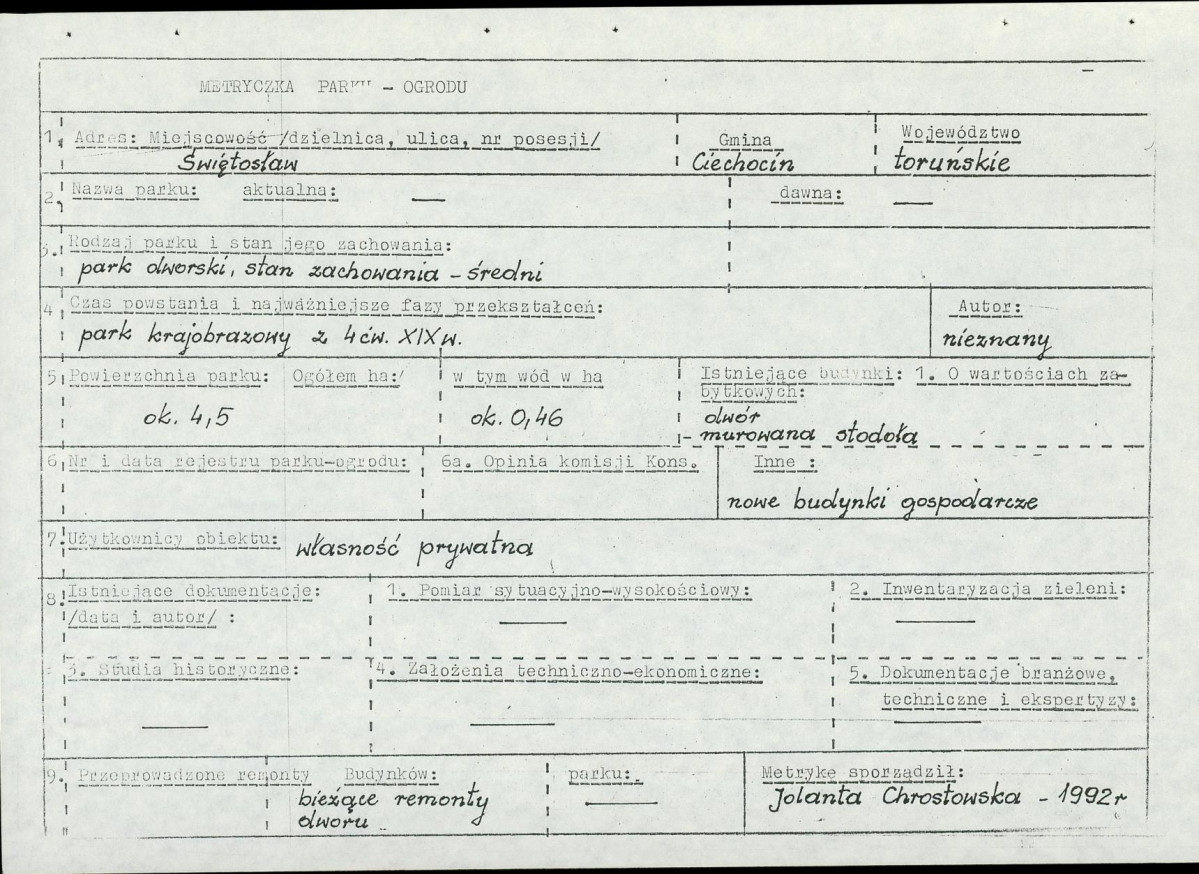 METRYCZKA PARKU - OGRODU
1. Adres: Miejscowość /dzielnica, ulica, nr posesji/ Gmina Województwo
Świętosław Ciechocin toruńskie
2. Nazwa parku: aktualna: — dawna: —
3. Rodzaj parku i stan jego zachowania:
park dworski, stan zachowania - średni
4 Czas powstania i najważniejsze fazy przekształceń: Autor:
park krajobrazowy z 4 ćw. XIX w. nieznany
5 Powierzchnia parku: Ogółem ha: w tym wód w ha Istniejące budynki: 1. O wartościach za-
bytkowych:
ok. 4,5 ok. 0,46 dwór
- murowana stodoła
6, Nr i data rejestru parku-ogrodu: 6a. Opinia komisji Kons. Inne :
nowe budynki gospodarcze
7. Użytkownicy obiektu: własność prywatna
8. Istniejące dokumentacje: 1. Pomiar sytuacyjno-wysokościowy: 2. Inwentaryzacja zieleni:
/data i autor/ : — —
3. Studia historyczne: 4. Założenia techniczno-ekonomiczne: 5. Dokumentacje branżowe,
techniczne i ekspertyzy:
— — —
9. Przeprowadzone remonty Budynków: parku: Metrykę sporządził:
bieżące remonty — Jolanta Chrostowska - 1992r
dworu